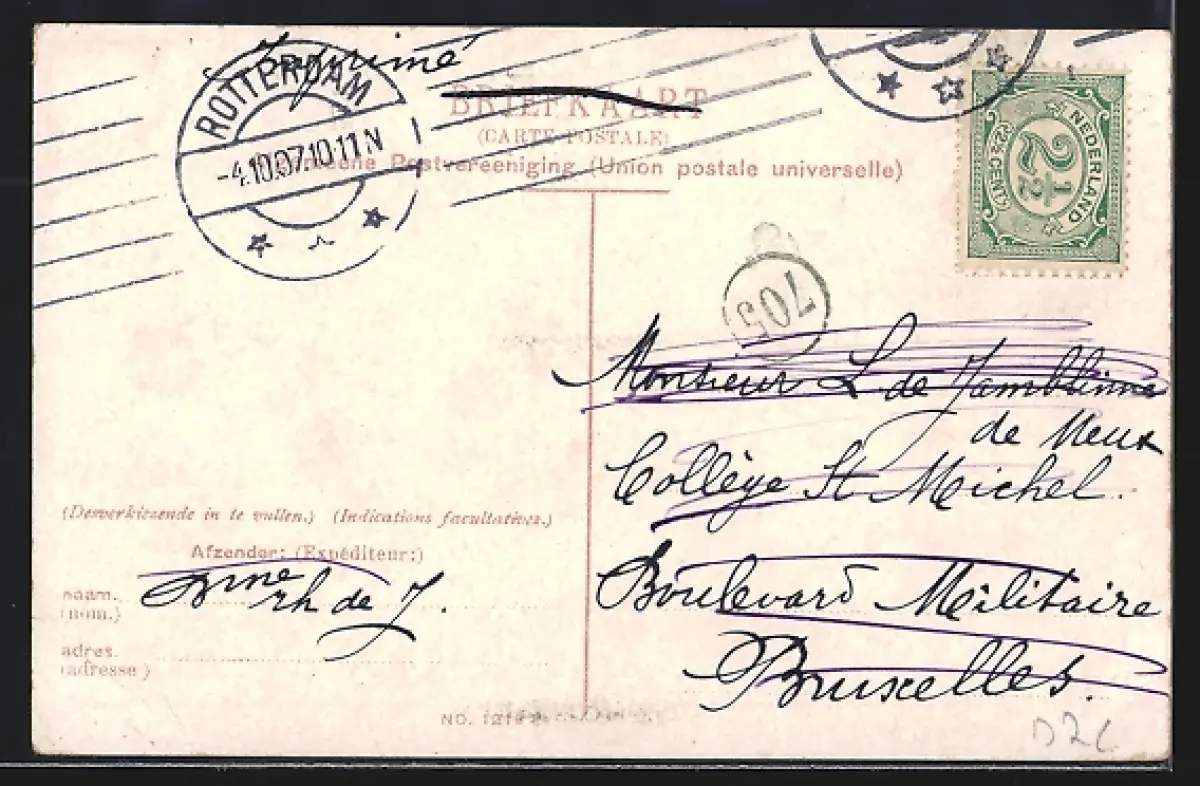 Imprimé
ROTTERDAM
-4.10.07.10-11N
BRIEFKAART
(CARTE POSTALE)
Postvereeniging (Union postale universelle)
NEDERLAND
2½
(2½ CENT)
705
Monsieur L de Jamblinne
de Meux
Collège St Michel.
Boulevard Militaire
Bruxelles.
(Desverkiezende in te vullen.) (Indications facultatives.)
Afzender: (Expéditeur:)
naam.
(nom.)
rh de J.
adres.
(adresse)
NO.